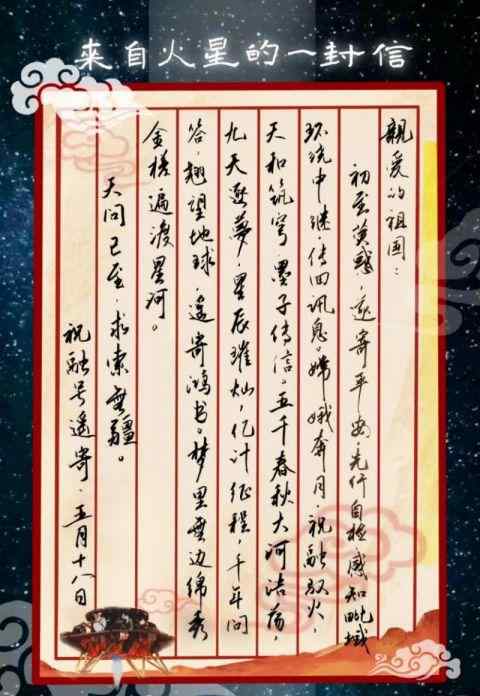 来自火星的一封信
親爱的祖国：
初至荧惑，遥寄平安。先行自检感知毗域
环绕中继，传回讯息。嫦娥奔月，祝融驭火，
天和筑穹，墨子传信。五千春秋大河浩荡，
九天逐夢，星辰璀灿，亿计征程，千年问
答，翘望地球，遥寄鸿书。梦里無边绵秀
金槎遍渡星河。
天问已至，求索無疆。
祝融号遥寄，五月十八日